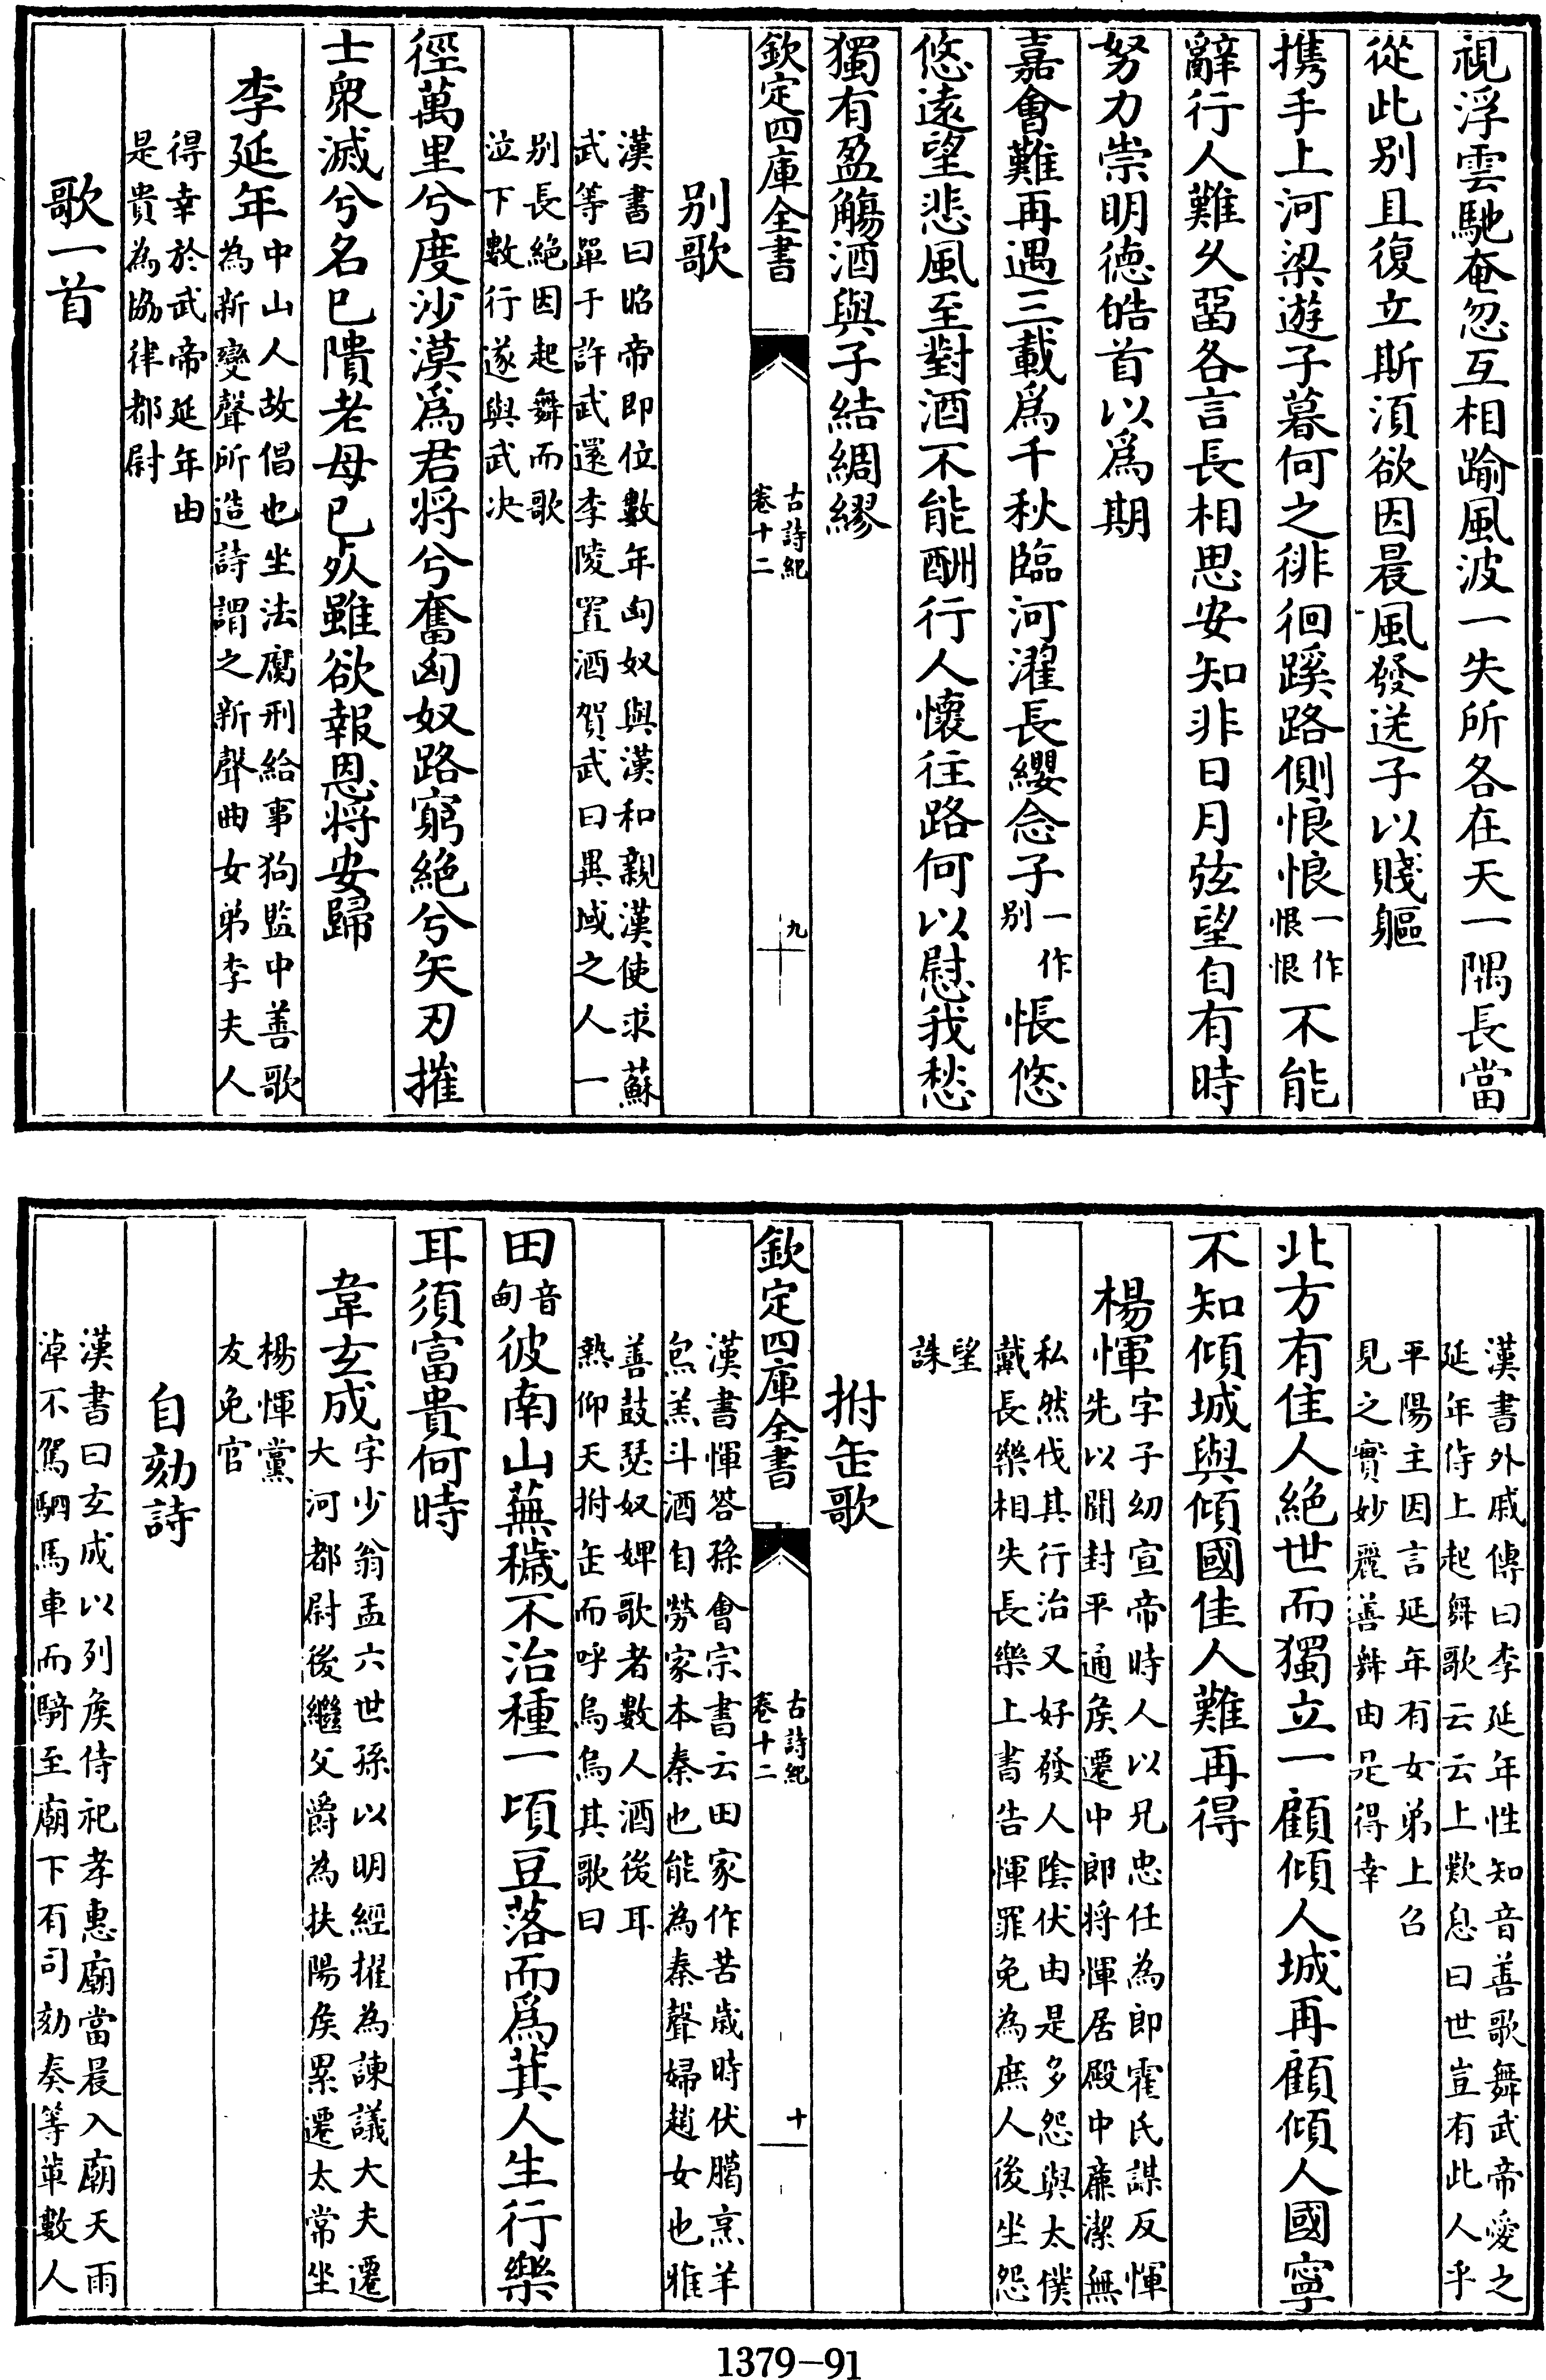 視浮雲馳奄忽互相踰風波一失所各在天一隅長當
從此别且復立斯湏欲因晨風發送子以賤軀
携手上河梁遊子暮何之徘徊蹊路側悢悢一作恨恨不能
辭行人難久畱各言長相思安知非日月弦望自有時
努力崇明徳皓首以為期
嘉會難再遇三載為千秋臨河濯長纓念子一作别悵悠
悠遠望悲風至對酒不能酬行人懷往路何以慰我愁
獨有盈觴酒與子結綢繆
欽定四庫全書
古詩紀
卷十二
九
别歌
漢書曰昭帝即位數年匈奴與漢和親漢使求蘇
武等單于許武還李陵置酒賀武曰異域之人一
别長絶因起舞而歌
泣下數行遂與武决
徑萬里兮度沙漠為君将兮奮匈奴路窮絶兮矢刃摧
士衆滅兮名已隤老母已死雖欲報恩将安歸
李延年中山人故倡也坐法腐刑給事狗監中善歌
為新變聲所造詩謂之新聲曲女弟李夫人
得幸於武帝延年由
是貴為協律都尉
歌一首
漢書外戚傳曰李延年性知音善歌舞武帝愛之
延年侍上起舞歌云云上歎息曰世豈有此人乎
平陽主因言延年有女弟上召
見之實妙麗善舞由是得幸
北方有佳人絶世而獨立一顧傾人城再顧傾人國寧
不知傾城與傾國佳人難再得
楊惲字子幼宣帝時人以兄忠任為郎霍氏謀反惲
先以聞封平通侯遷中郎將惲居殿中亷潔無
私然伐其行治又好發人陰伏由是多怨與太僕
戴長樂相失長樂上書告惲罪免為庶人後坐怨
望
誅
拊缶歌
漢書惲答孫會宗書云田家作苦歳時伏臘烹羊
炰羔斗酒自勞家本秦也能為秦聲婦趙女也雅
善鼓瑟奴婢歌者數人酒後耳
熱仰天拊缶而呼烏烏其歌曰
欽定四庫全書
古詩紀
卷十二
十
田音甸彼南山蕪穢不治種一頃豆落而為萁人生行樂
耳須富貴何時
韋玄成字少翁孟六世孫以明經擢為諫議大夫遷
大河都尉後繼父爵為扶陽侯累遷太常坐
楊惲黨
友免官
自劾詩
漢書曰玄成以列侯侍祀孝惠廟當晨入廟天雨
淖不駕駟馬車而騎至廟下有司劾奏等軰數人
1379-91